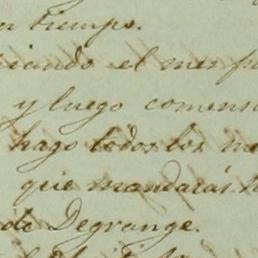 tiempo.
ciando el mes p
y luego comens
hago todos los me
que mandarás h
de Degrange.